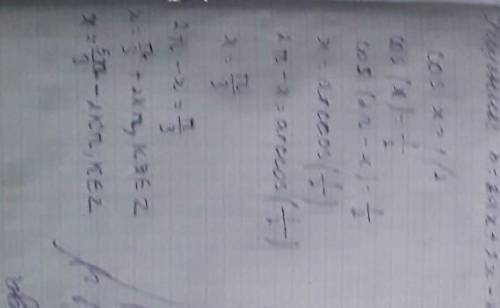 cos x = 1/2
cos (x) = 1/2
cos (2π - x) = 1/2
x = arccos(1/2)
2π - x = arccos(1/2)
x = π/3
2π - x = π/3
x = π/3 + 2kπ, k ∈ Z
x = 5π/3 - 2kπ, k ∈ Z